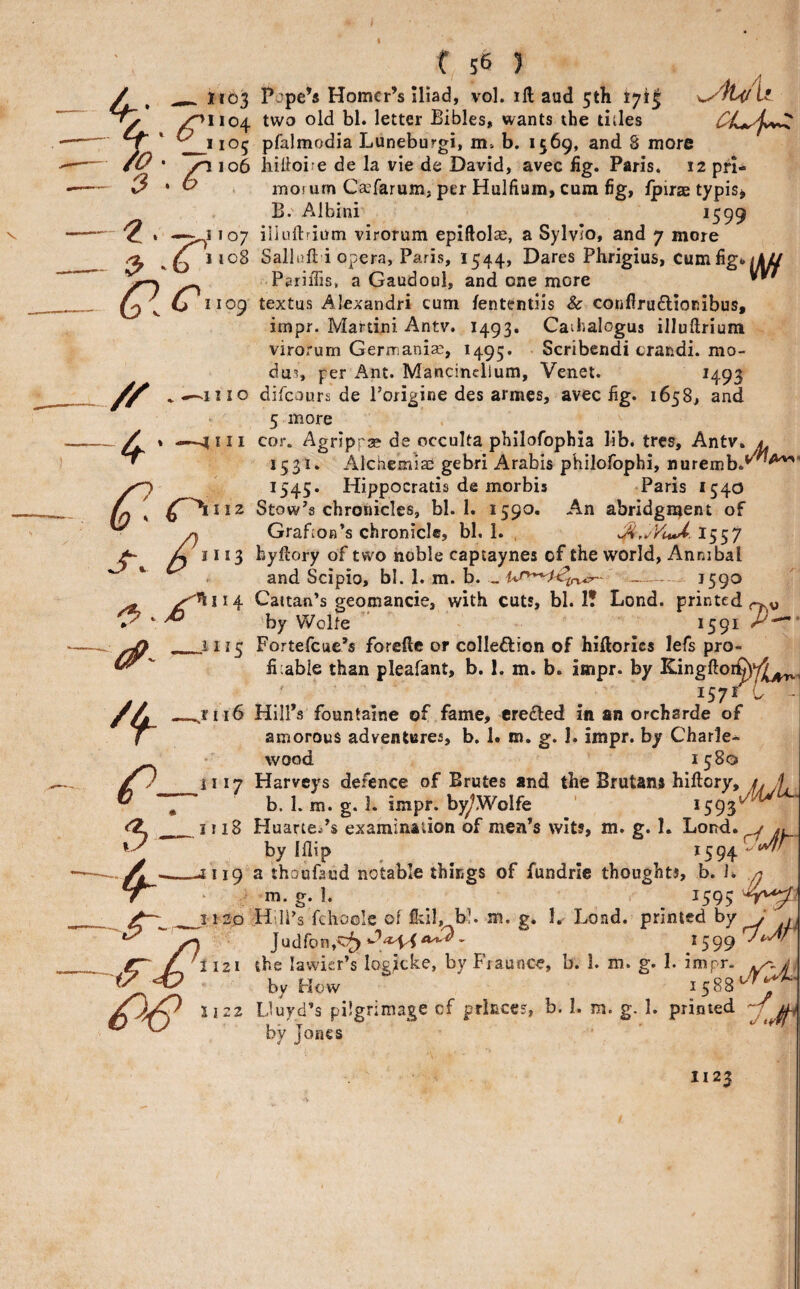 ( 56 )
4. — 1103 Pope's Homer's Iliad, vol. 1ſt aud 5th 1715
4. 6 1104 two old bl. letter Bibles, wants the titles
1105 pſalmodia Luneburgi, m. b. 1569, and 8 more
10. 6 1106 hiſtoire de la vie de David, avec fig. Paris. 12 pri-
3. 6 morum Cæſarum, per Hulſium, cum fig, ſpiræ typis,
B. Albini 1599
2. — 1107 illuſtrium virorum epiſtolæ, a Sylvio, and 7 more
3. 6 1108 Salluſti opera, Paris, 1544, Dares Phrigius, cum fig.
Pariſiis, a Gaudoul, and one more
6. 6 1109 textus Alexandri cum ſententiis & conſtructionibus,
impr. Martini Antv. 1493. Cathalogus illuſtrium
virorum Germaniæ, 1495. Scribendi orandi. mo-
dus, per Ant. Mancinellum, Venet. 1493
11. — 1110 diſcours de l'origine des armes, avec fig. 1658, and
5 more
4. — 1111 cor. Agrippæ de occulta philoſophia lib. tres, Antv.
1531. Alchemiæ gebri Arabis philoſophi, nuremb.
1545. Hippocratis de morbis Paris 1540
6. 6 1112 Stow's chronicles, bl. l. 1590. An abridgment of
Grafton's chronicle, bl. l. 1557
5. 6 1113 hyſtory of two noble captaynes of the world, Annibal
and Scipio, bl. l. m. b. 1590
9. 6 1114 Cattan's geomancie, with cuts, bl. l. Lond. printed
by Wolfe 1591
1115 Forteſcue's foreſte or collection of hiſtories leſs pro-
fitable than pleaſant, b. l. m. b. impr. by Kingſton
1571
14. — 1116 Hill's fountaine of fame, erected in an orcharde of
amorous adventures, b. l. m. g. l. impr. by Charle-
wood 1580
6 1117 Harveys defence of Brutes and the Brutans hiſtory,
b. l. m. g. l. impr. by Wolfe 1593
3 — 1118 Huartes's examination of men's wits, m. g. l. Lond.
by Iſlip 1594
4. — 1119 a thouſand notable things of ſundrie thoughts, b. l.
m. g. l. 1595
5. — 1120 Hill's ſchoole of ſkil, bl. m. g. l. Lond. printed by
Judſon, 1599
5. 6 1121 the lawier's logicke, by Fraunce, b. l. m. g. l. impr.
by How 1588
1122 Lluyd's pilgrimage of princes, b. l. m. g. l. printed
by Jones
1123